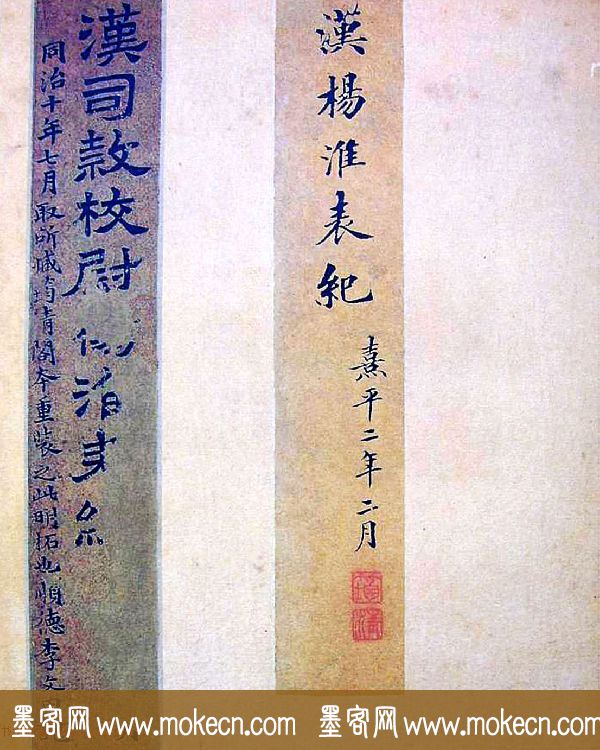 漢楊淮表紀
熹平二年二月
漢司隸校尉
同治十年七月取所臧筠青閣本重裝之此明拓也順德李文
墨客网 www.mokecn.com 墨客网 www.mokecn.com